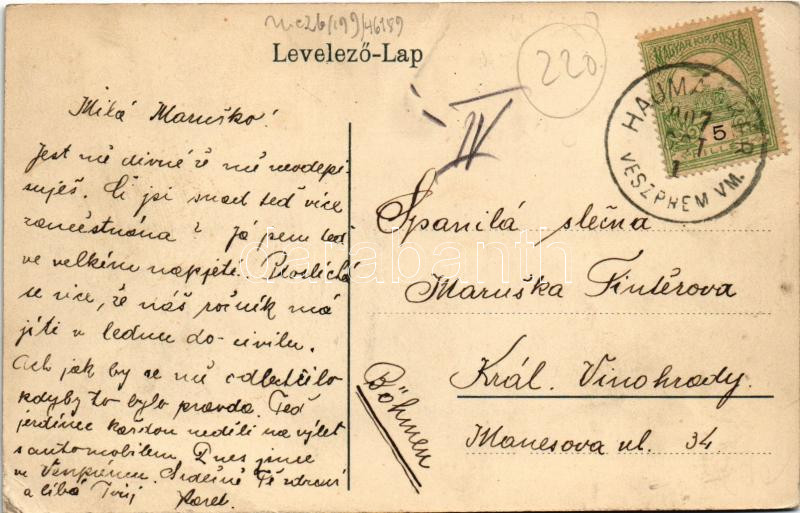 Levelező-Lap
220
IV
MAGYAR KIR. POSTA
5
HAJMÁSKÉR
907
VESZPRÉM VM.
Milá Maruško!
Jest mě divné že mě neodepi-
suješ. Či jsi snad teď více
zaměstnána? Já jsem teď
ve velkém napjetí. Proslíchá
se více, že náš ročník má
jíti v lednu do civilu.
Ach jak by se mě odlehčilo
kdyby to bylo pravda. Teď
jezdíme každou neděli na výlet
s automobilem. Dnes jsme
ve Vesprému. Srdečně Tě zdraví
a líbá Tvůj Karel.
Spanilá slečna
Maruška Fintěrova
Král. Vinohrady.
Manesova ul. 34
Böhmen
darabanth